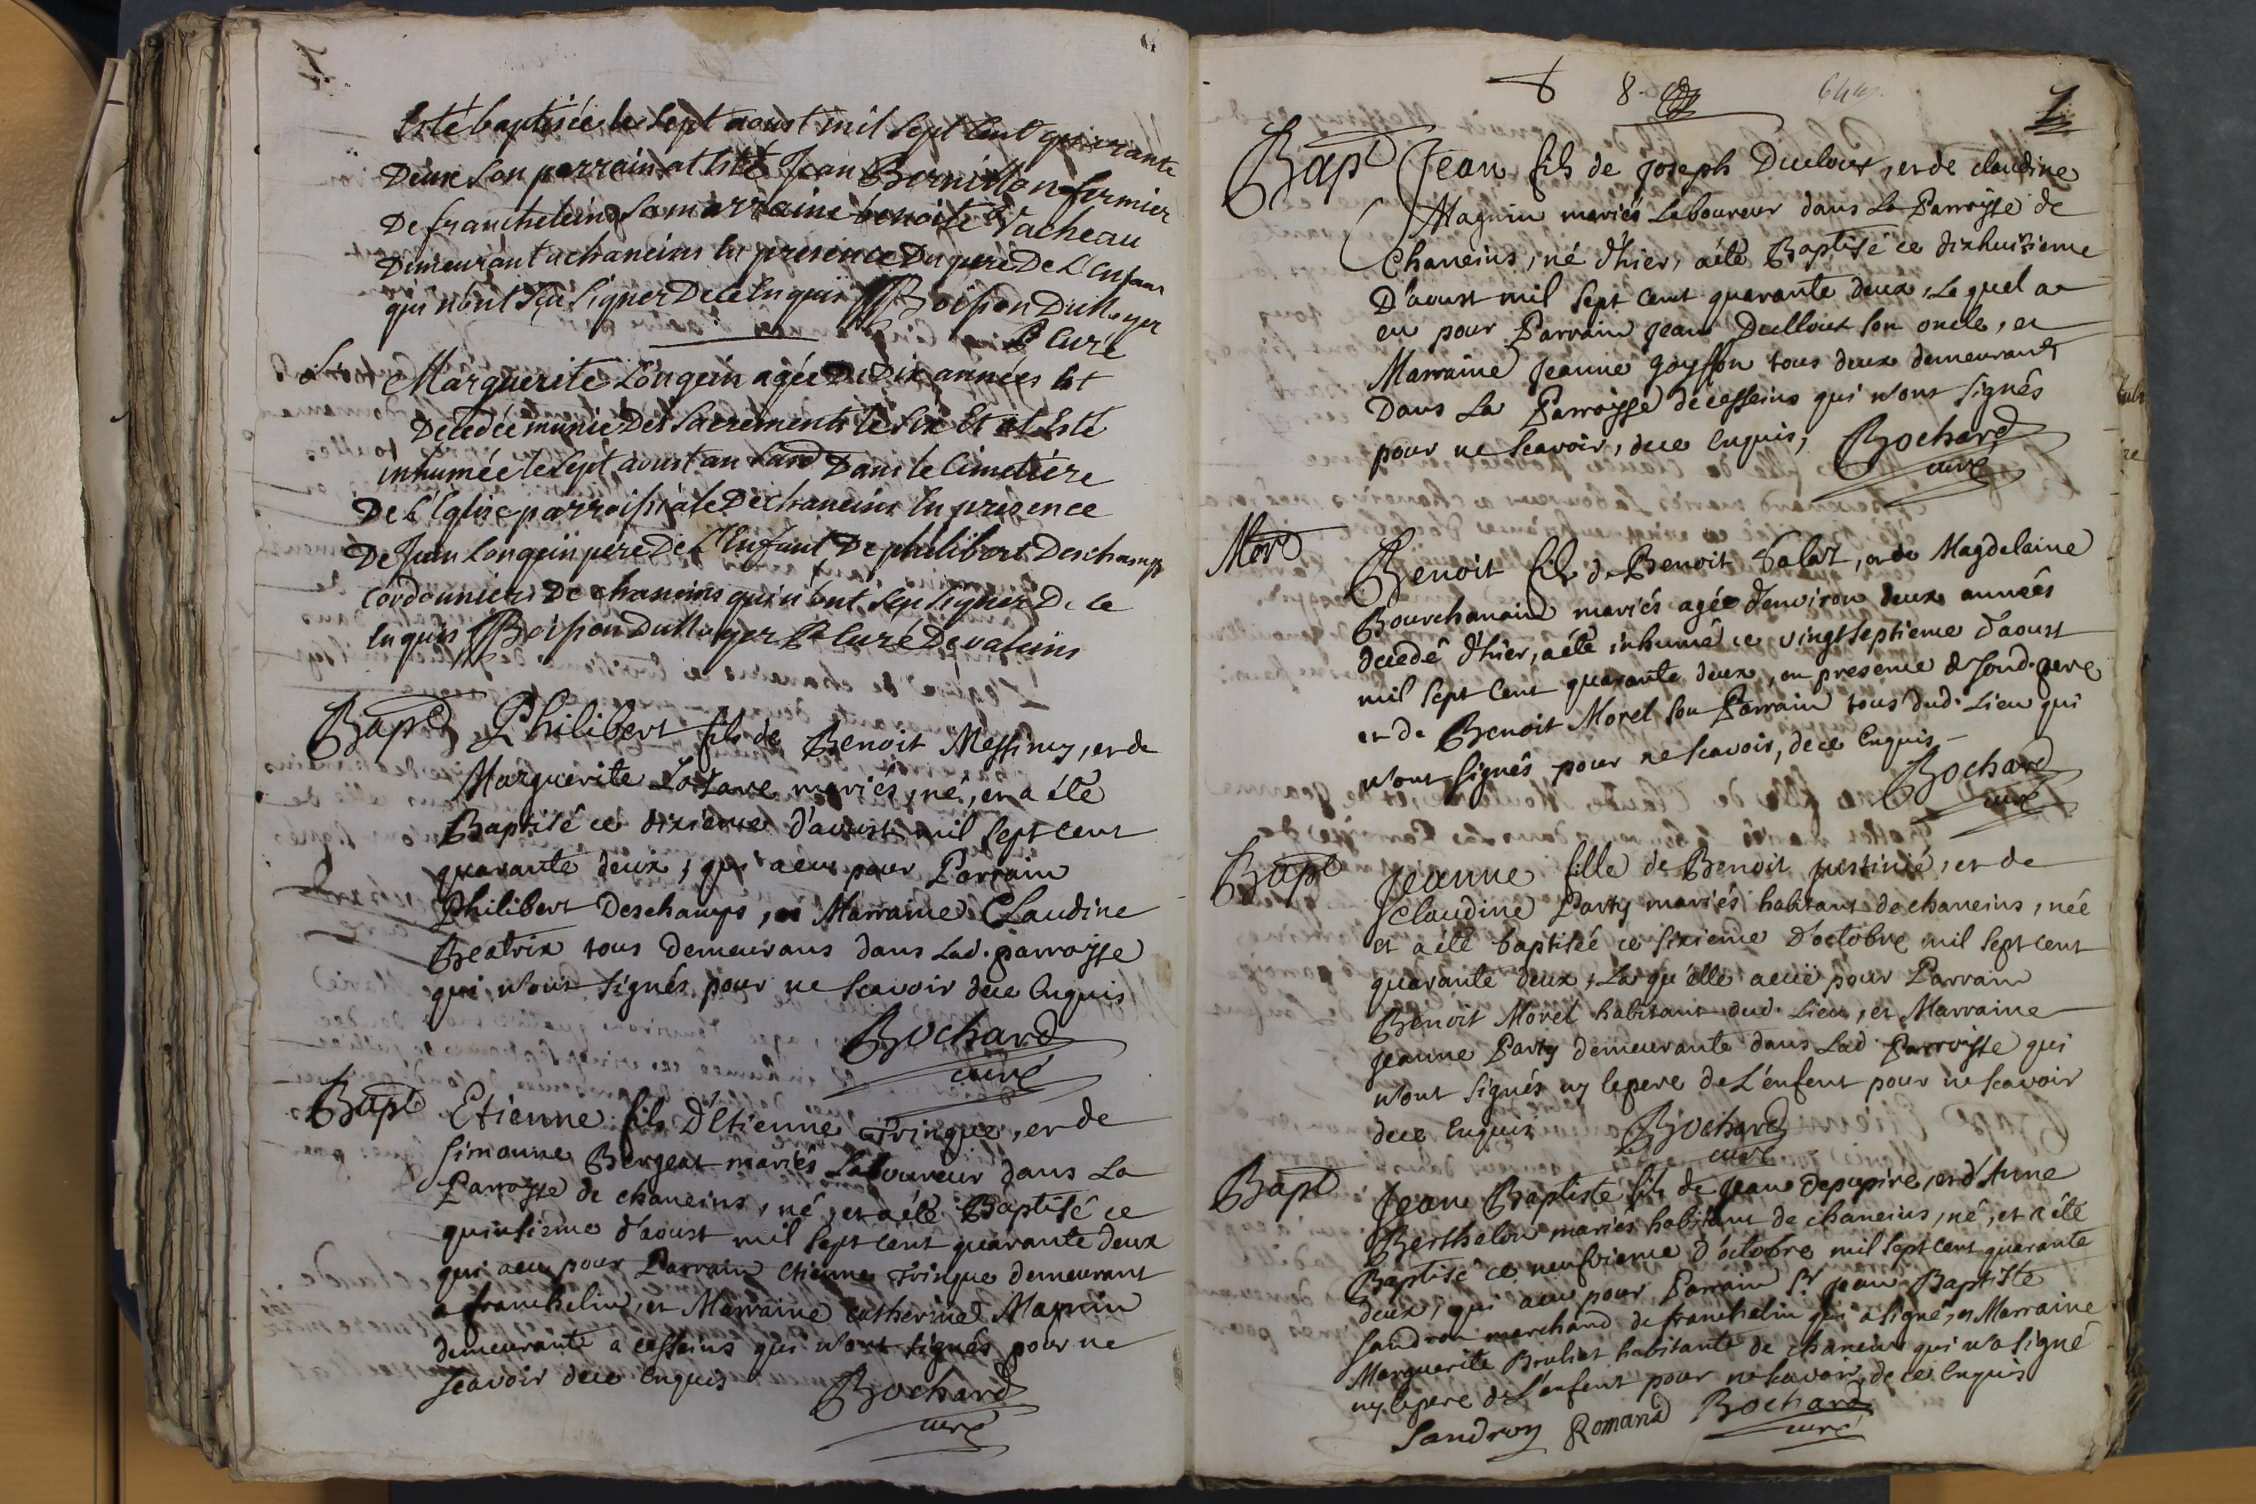 Esté baptisée le sept aoust mil sept cent quarante
Deux son parrain at Esté Jean Bernillon fermier
De franchelein sa marraine benoite Vacheau
Demeurant a chaneins En presence Du pere De L'Enfant
qui n'ont sçu signer De ce Enquis Boisson Dunoyer
P. Curé
Marguerite Longein agée De Dix années Est
Decedée munie Des Sacrements le six Et at Esté
inhumée le sept aoust an susd Dans le Cimetiere
De L'Eglise parroissiale De chaneins En presence
De Jean Longein pere De L'Enfant De philibert Deschamps
Cordonniers De chaneins qui n'ont sçu signer De ce
Enquis Boisson Dunoyer P. Curé De valeins
Bapt Philibert fils de Benoit Messimy, et de
Marguerite mariés, né, et a été
Baptisé ce dixieme d'aoust mil sept cent
quarante deux, qui a eu pour Parrain
Philibert Deschamps, et Marraine Claudine
Beatrix tous demeurans dans Lad. parroisse
qui n'ont signés pour ne scavoir de ce Enquis
Bochard
curé
Bapt Etienne fils d'Etienne Tringue, et de
Simonne Bergeat mariés Laboureur dans La
Parroisse de chaneins, né, et a été Baptisé ce
quinsieme d'aoust mil sept cent quarante deux
qui a eu pour Parrain Etienne Tringue demeurant
a franchelin, et Marraine Catherine Magnin
demeurante a cesseins qui n'ont signés pour ne
scavoir de ce Enquis Bochard
curé
8
Bapt Jean fils de Joseph Duclour, et de claudine
Magnin mariés Laboureur dans La Parroisse de
Chaneins, né d'hier, a été Baptisé ce dixhuitieme
D'aoust mil sept cent quarante deux, Lequel a
eu pour Parrain Jean son oncle, et
Marraine Jeanne Goyffon tous deux demeurants
Dans La Parroisse de cesseins qui n'ont signés
pour ne scavoir, de ce Enquis, Bochard
curé
Mort
Benoit fils de Benoit, et de Magdelaine
Bourchanain mariés agée d'environ deux années
decedé d'hier, a été inhumé ce vingt septieme d'aoust
mil sept cent quarante deux, en presence de sond. pere
et de Benoit Morel son Parrain tous dud. Lieu qui
n'ont signés pour ne scavoir, de ce Enquis
Bochard
curé
Bapt Jeanne fille de Benoit, et de
Claudine Party mariés habitant de chaneins, née
et a été baptisée ce sixieme D'octobre mil sept cent
quarante deux, Laqu'elle a eüe pour Parrain
Benoit Morel habitant dud. Lieu, et Marraine
Jeanne Party demeurante dans Lad. Parroisse qui
n'ont signés ny le pere de L'enfent pour ne scavoir
de ce Enquis Bochard
curé
Bapt Jean Baptiste fils de Jean Depupire, et d'Anne
Berthelon mariés habitant de chaneins, né, et a été
Baptisé ce neufvieme d'octobre mil sept cent quarante
deux, qui a eu pour Parrain Sr. Jean Baptiste
Sandron marchand de franchelin qui a signé, et Marraine
Marguerite Bruliat habitante de chaneins qui n'a signé
ny le pere de L'enfent pour ne scavoir, de ce Enquis
Sandron Romand Bochard
curé